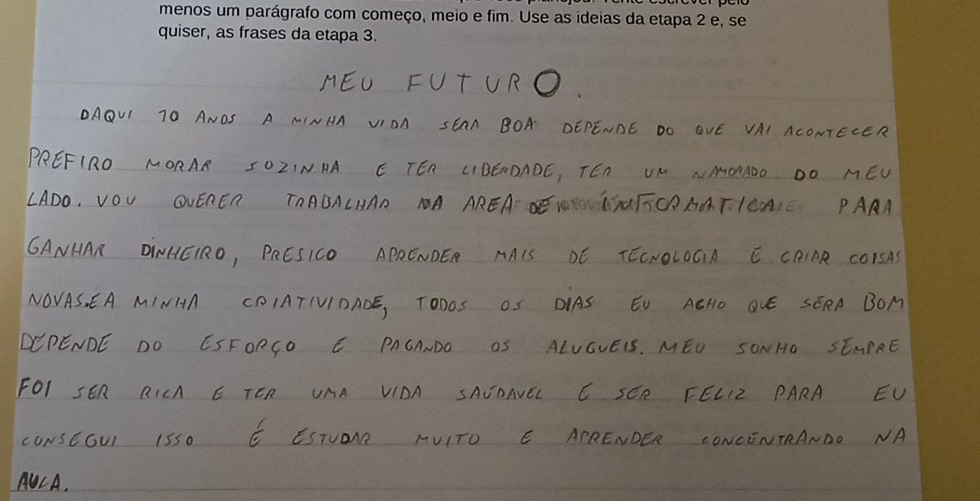 menos um parágrafo com começo, meio e fim. Use as ideias da etapa 2 e, se
quiser, as frases da etapa 3.
MEU FUTURO.
DAQUI 10 ANOS A MINHA VIDA SERA BOA DEPENDE DO QUE VAI ACONTECER
PREFIRO MORAR SOZINHA E TER LIBERDADE, TER UM NAMORADO DO MEU
LADO. VOU QUERER TRABALHAR NA AREA DE INFORMATICA PARA
GANHAR DINHEIRO, PRESICO APRENDER MAIS DE TECNOLOGIA E CRIAR COISAS
NOVAS.E A MINHA CRIATIVIDADE, TODOS OS DIAS EU ACHO QUE SERA BOM
DEPENDE DO ESFORÇO E PAGANDO OS ALUGUEIS. MEU SONHO SEMPRE
FOI SER RICA E TER UMA VIDA SAÚDAVEL E SER FELIZ PARA EU
CONSEGUI ISSO É ESTUDAR MUITO E APRENDER CONCENTRANDO NA
AULA.